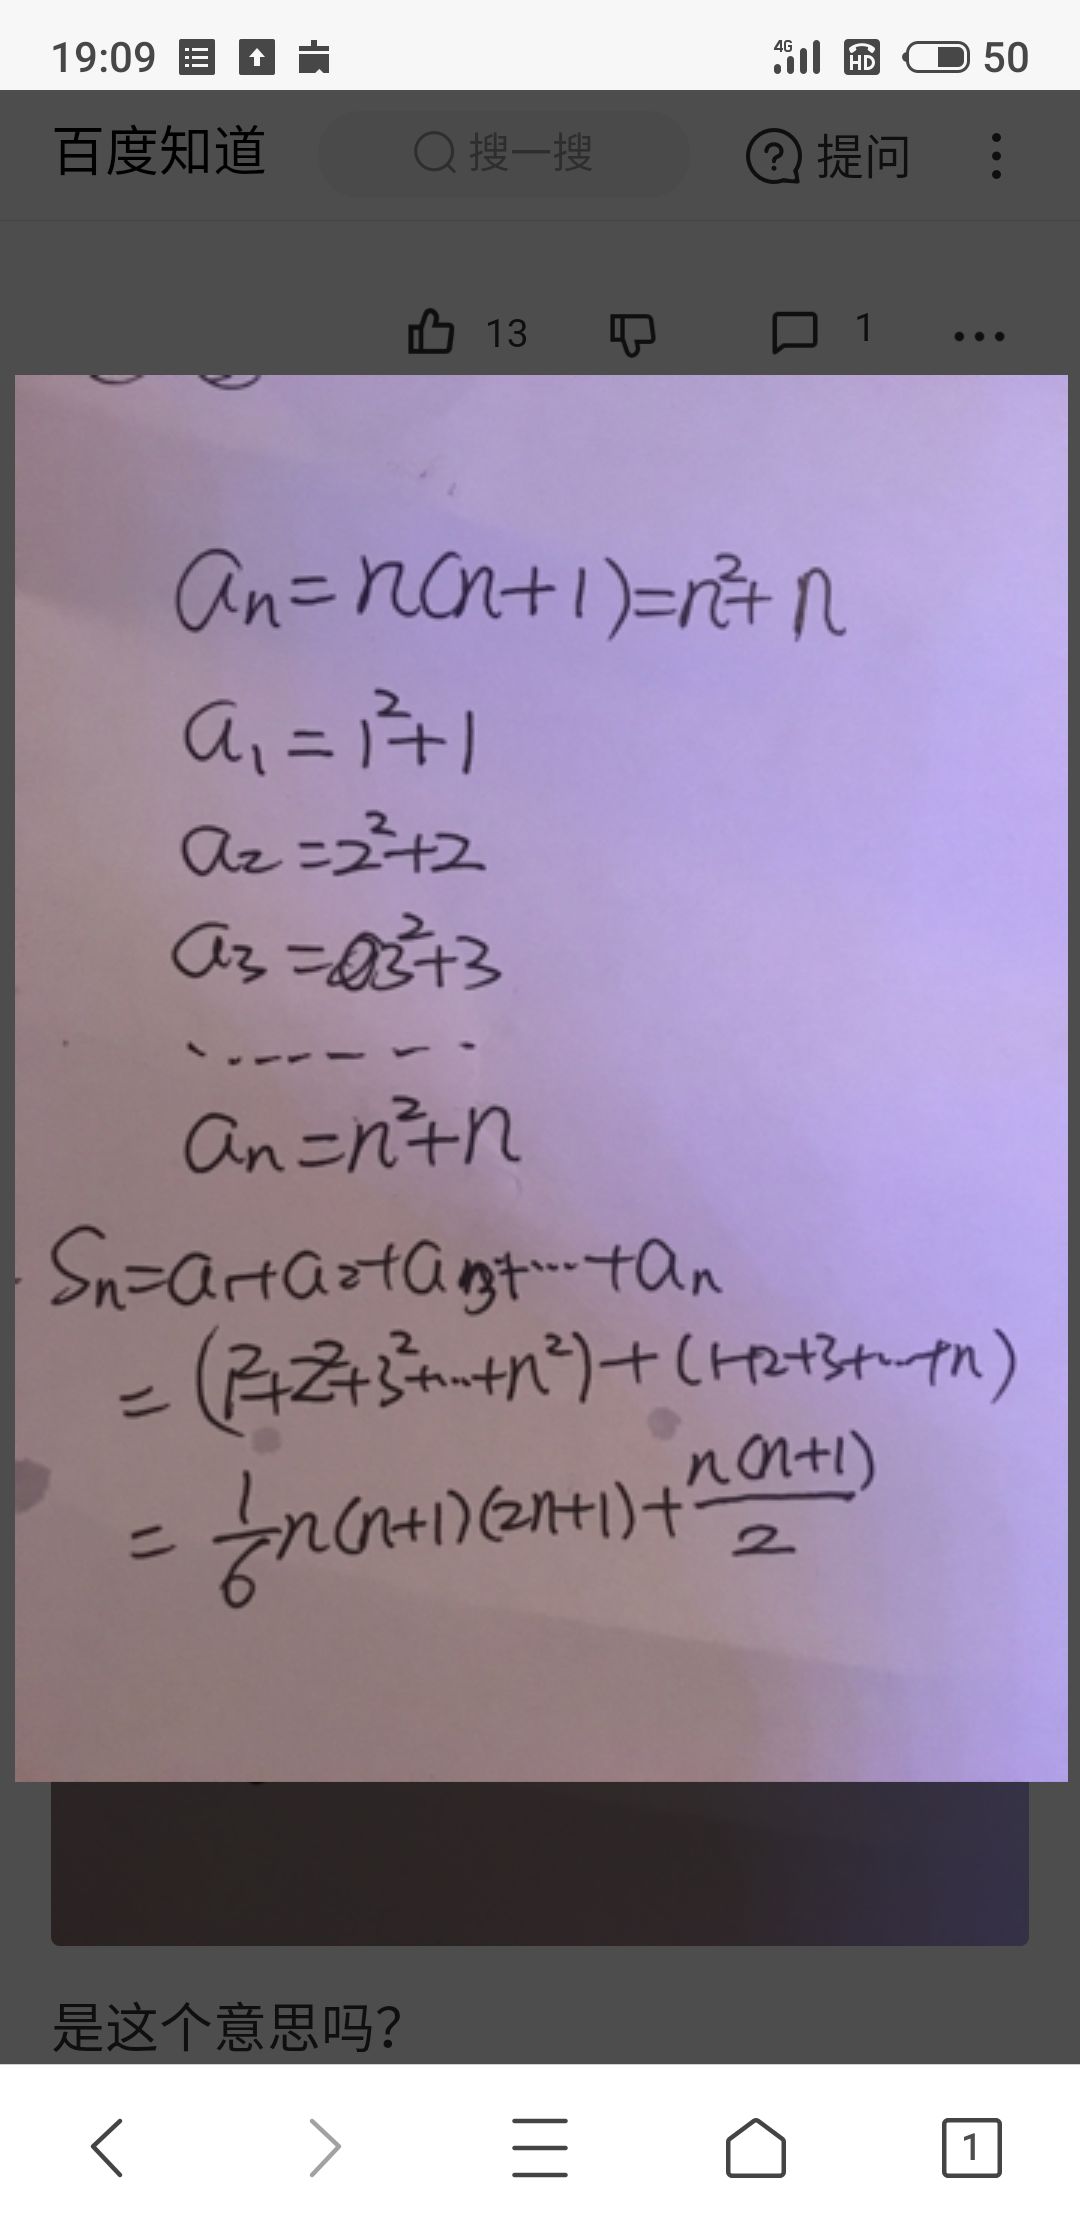 19:09 4G HD 50
百度知道 搜一搜 ? 提问
13 1
aₙ=n(n+1)=n²+n
a₁=1²+1
a₂=2²+2
a₃=3²+3
.......
aₙ=n²+n
Sₙ=a₁+a₂+a₃+…+aₙ
=(1²+2²+3²+…+n²)+(1+2+3+…+n)
=1/6n(n+1)(2n+1)+n(n+1)/2
是这个意思吗?
1